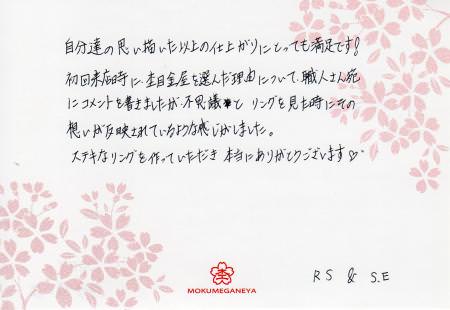 自分達の思い描いた以上の仕上がりにとっても満足です!
初回来店時に、杢目金屋を選んだ理由について、職人さん宛
にコメントを書きましたが、不思議とリングを見た時にその
想いが反映されているような感じがしました。
ステキなリングを作っていただき本当にありがとうございます♡
杢
MOKUMEGANEYA
RS & S.E